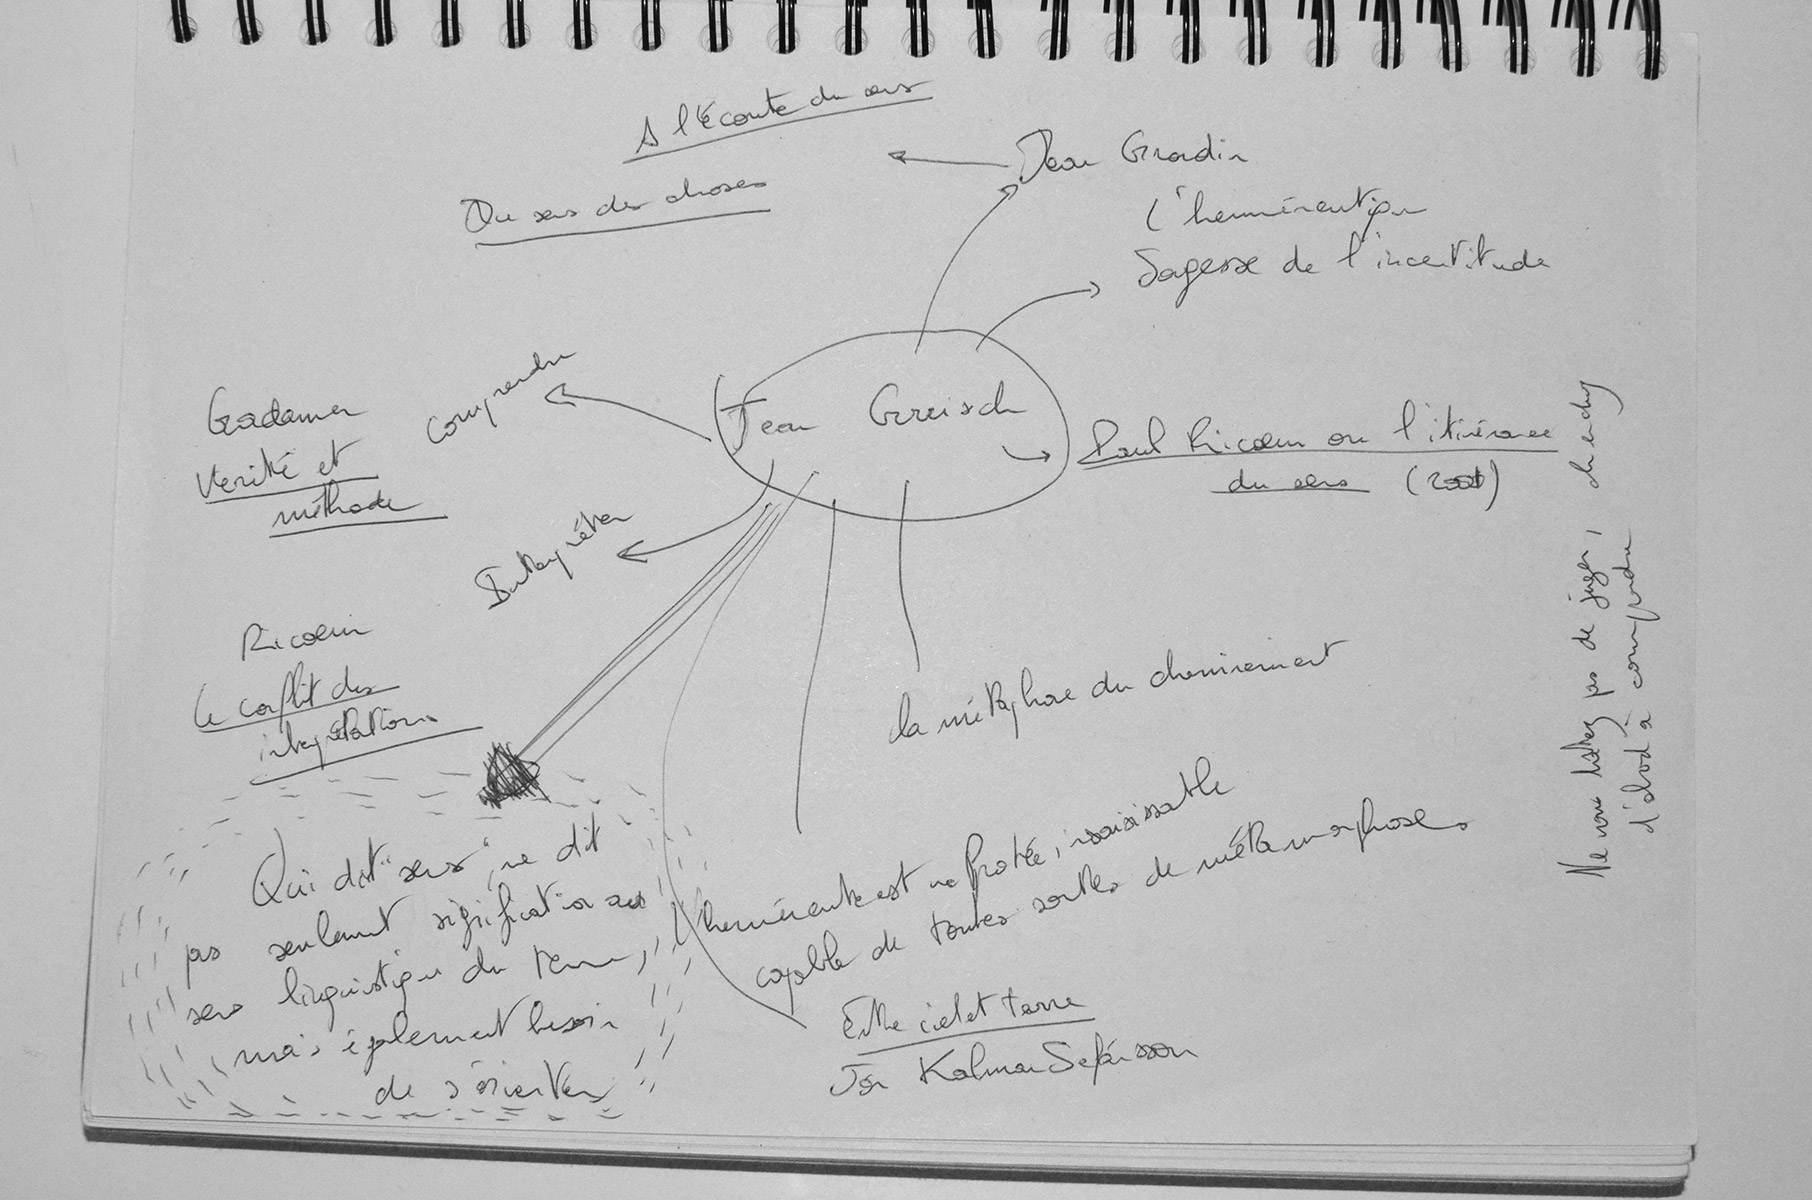 A l'écoute du sens
Du sens des choses
Jean Grondin
L'herméneutique
Sagesse de l'incertitude
Jean Greisch
Paul Ricœur ou l'itinérance
du sens (2001)
comprendre
Gadamer
Vérité et
méthode
Interpréter
Ricœur
Le conflit des
interprétations
la métaphore du cheminement
l'herméneute est un Protée, insaisissable
capable de toutes sortes de métamorphoses
Entre ciel et terre
Jón Kalman Stefánsson
Qui dit "sens", ne dit
pas seulement signification au
sens linguistique du terme,
mais également besoin
de s'orienter
Ne vous hâtez pas de juger, cherchez
d'abord à comprendre